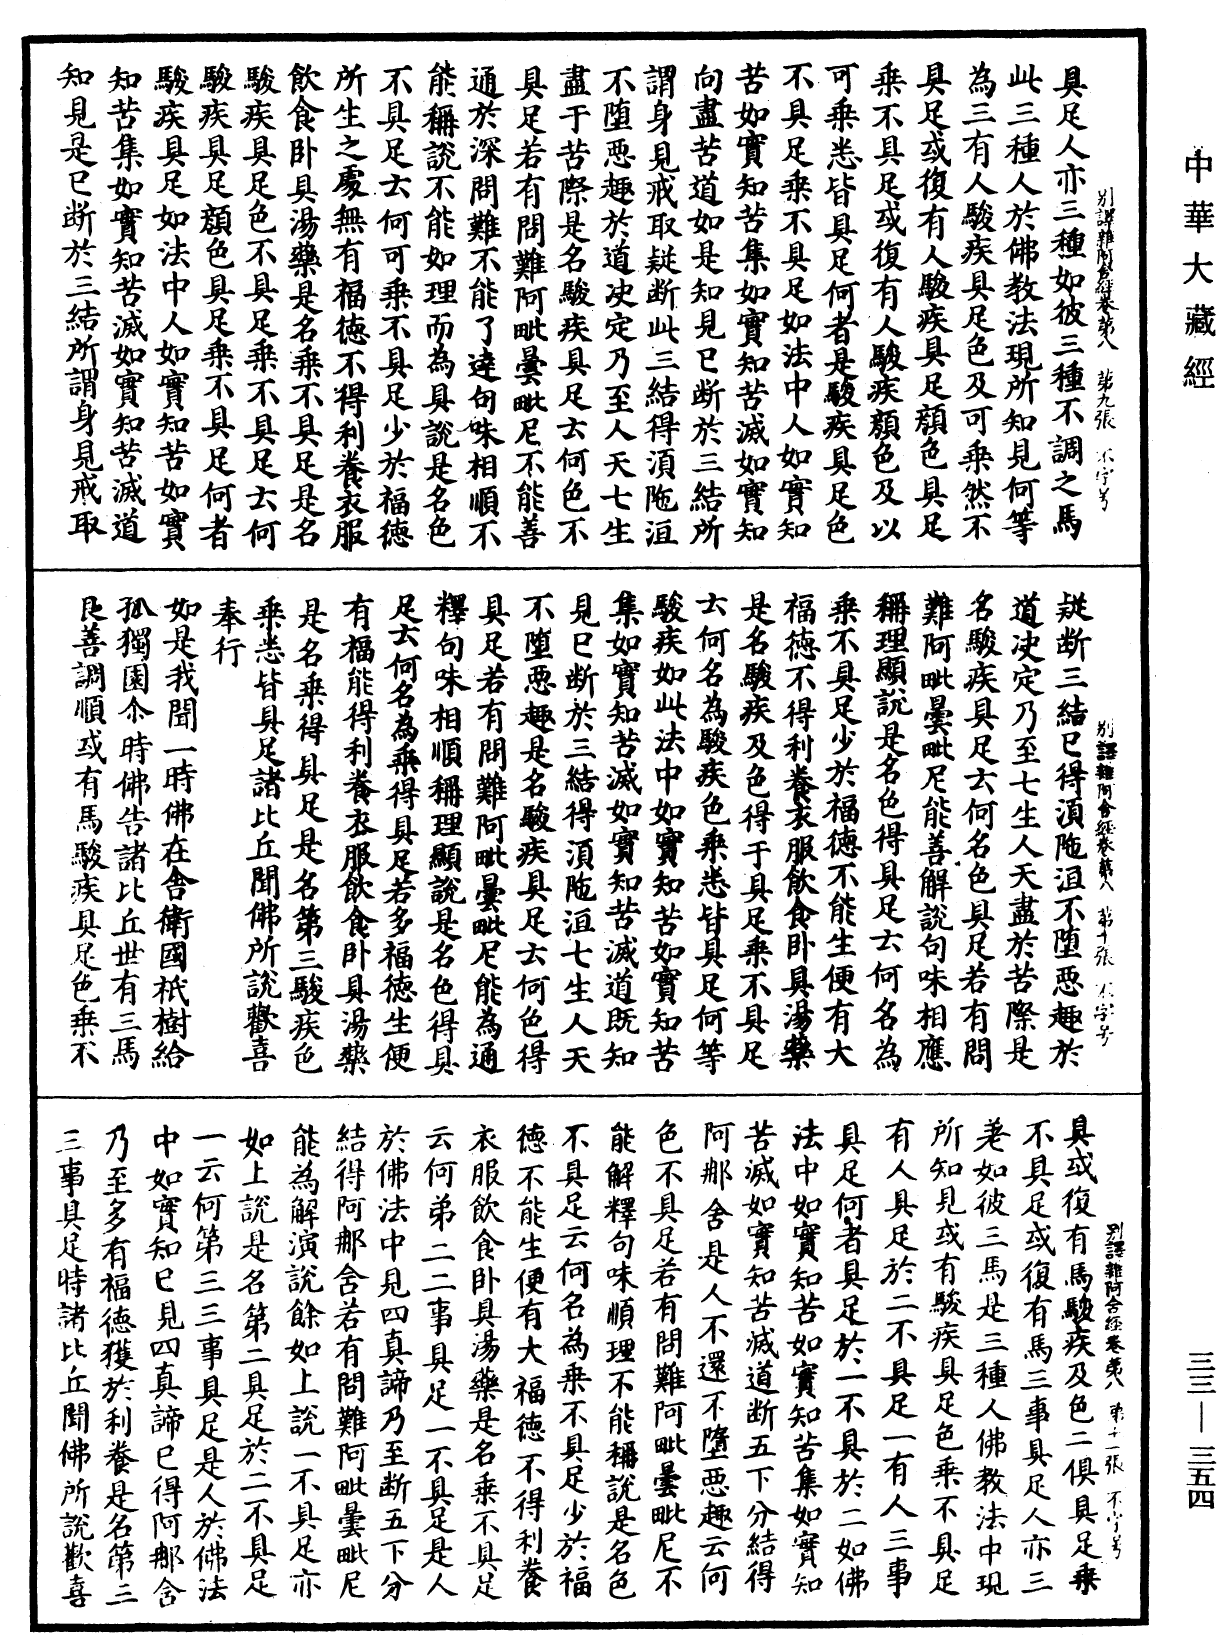 中華大藏經
別譯雜阿含經卷第八　第九張　不字号
具足人亦三種如彼三種不調之馬
此三種人於佛教法現所知見何等
為三有人駿疾具足色及可乘然不
具足或復有人駿疾具足顏色具足
乘不具足或復有人駿疾顏色及以
可乘悉皆具足何者是駿疾具足色
不具足乘不具足如法中人如實知
苦如實知苦集如實知苦滅如實知
向盡苦道如是知見已断於三結所
謂身見戒取疑断此三結得湏陁洹
不堕惡趣於道决定乃至人天七生
盡于苦際是名駿疾具足云何色不
具足若有問難阿毗曇毗尼不能善
通於深問難不能了達句味相順不
能稱說不能如理而為具說是名色
不具足云何可乘不具足少於福德
所生之處無有福德不得利養衣服
飲食卧具湯藥是名乘不具足是名
駿疾具足色不具足乘不具足云何
駿疾具足顏色具足乘不具足何者
駿疾具足如法中人如實知苦如實
知苦集如實知苦滅如實知苦滅道
知見是已断於三結所謂身見戒取
別譯雜阿含經卷第八　第十張　不字号
疑断三結已得湏陁洹不堕惡趣於
道决定乃至七生人天盡於苦際是
名駿疾具足云何名色具足若有問
難阿毗曇毗尼能善解說句味相應
稱理顯說是名色得具足云何名為
乘不具足少於福德不能生便有大
福德不得利養衣服飲食卧具湯藥
是名駿疾及色得于具足乘不具足
云何名為駿疾色乘悉皆具足何等
駿疾如此法中如實知苦如實知苦
集如實知苦滅如實知苦滅道既知
見已断於三結得湏陁洹七生人天
不堕惡趣是名駿疾具足云何色得
具足若有問難阿毗曇毗尼能為通
釋句味相順稱理顯說是名色得具
足云何名為乘得具足若多福德生便
有福能得利養衣服飲食卧具湯藥
是名乘得具足是名第三駿疾色
乘悉皆具足諸比丘聞佛所說歡喜
奉行
如是我聞一時佛在舍衛國祇樹給
孤獨園尒時佛告諸比丘世有三馬
良善調順或有馬駿疾具足色乘不
別譯雜阿含經卷第八　第十一張　不字号
具或復有馬駿疾及色二俱具足乘
不具足或復有馬三事具足人亦三
差如彼三馬是三種人佛教法中現
所知見或有駿疾具足色乘不具足
有人具足於二不具足一有人三事
具足何者具足於一不具於二如佛
法中如實知苦如實知苦集如實知
苦滅如實知苦滅道断五下分結得
阿那舍是人不還不墮惡趣云何
色不具足若有問難阿毗曇毗尼不
能解釋句味順理不能稱說是名色
不具足云何名為乘不具足少於福
德不能生便有大福德不得利養
衣服飲食卧具湯藥是名乘不具足
云何第二二事具足一不具足是人
於佛法中見四真諦乃至断五下分
結得阿那舍若有問難阿毗曇毗尼
能為解演說餘如上說一不具足亦
如上說是名第二具足於二不具足
一云何第三三事具足是人於佛法
中如實知已見四真諦已得阿那舍
乃至多有福德獲於利養是名第三
三事具足時諸比丘聞佛所說歡喜
三三—三五四